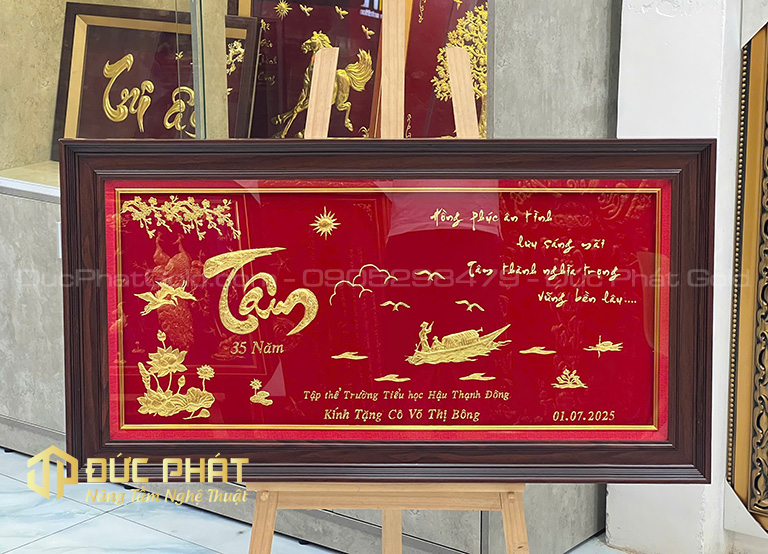 Tri ân
Hồng phúc ân tình
lưu sáng mãi
Tâm thành nghĩa trọng
vững bền lâu....
Tâm
35 Năm
Tập thể Trường Tiểu học Hậu Thạnh Đông
Kính Tặng Cô Võ Thị Bông
01.07.2025
DucPhatGold.com - 0905298479 - Duc Phat Gold
ĐỨC PHÁT
Nâng Tầm Nghệ Thuật